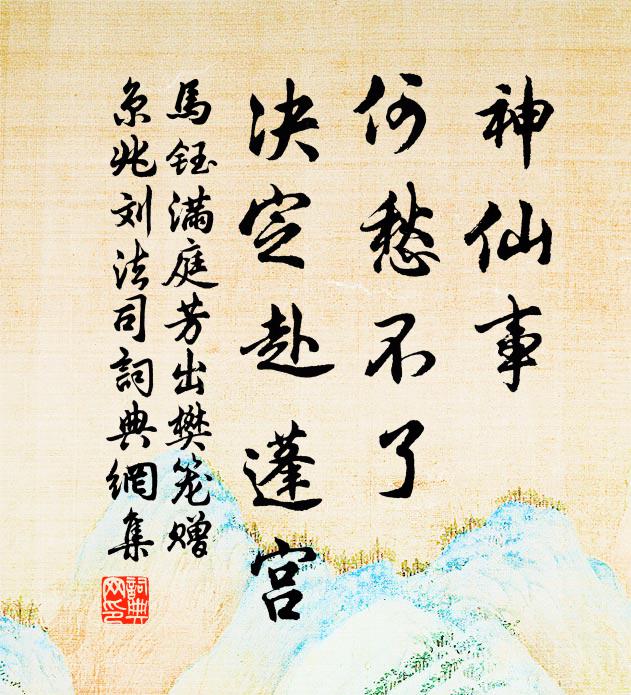 神仙事
何愁不了
决定赴蓬宫
馬鈺满庭芳出樊笼赠
京兆刘法司詞典網集
詞典